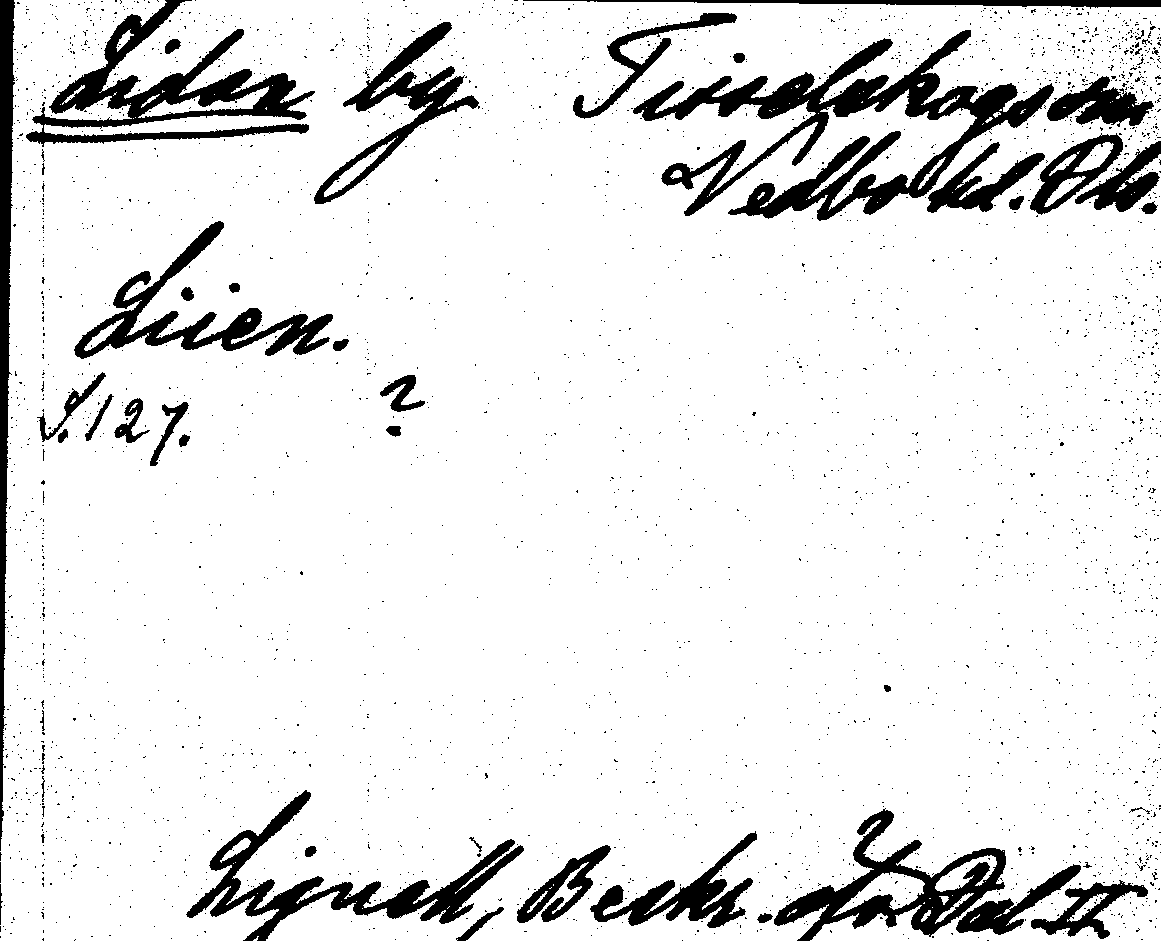 Lidan by Tisselskogs sn.
Vedbo hd. Dls.
Liien.
S. 127. ?
Lignell, Beskr. öfver Dal. II